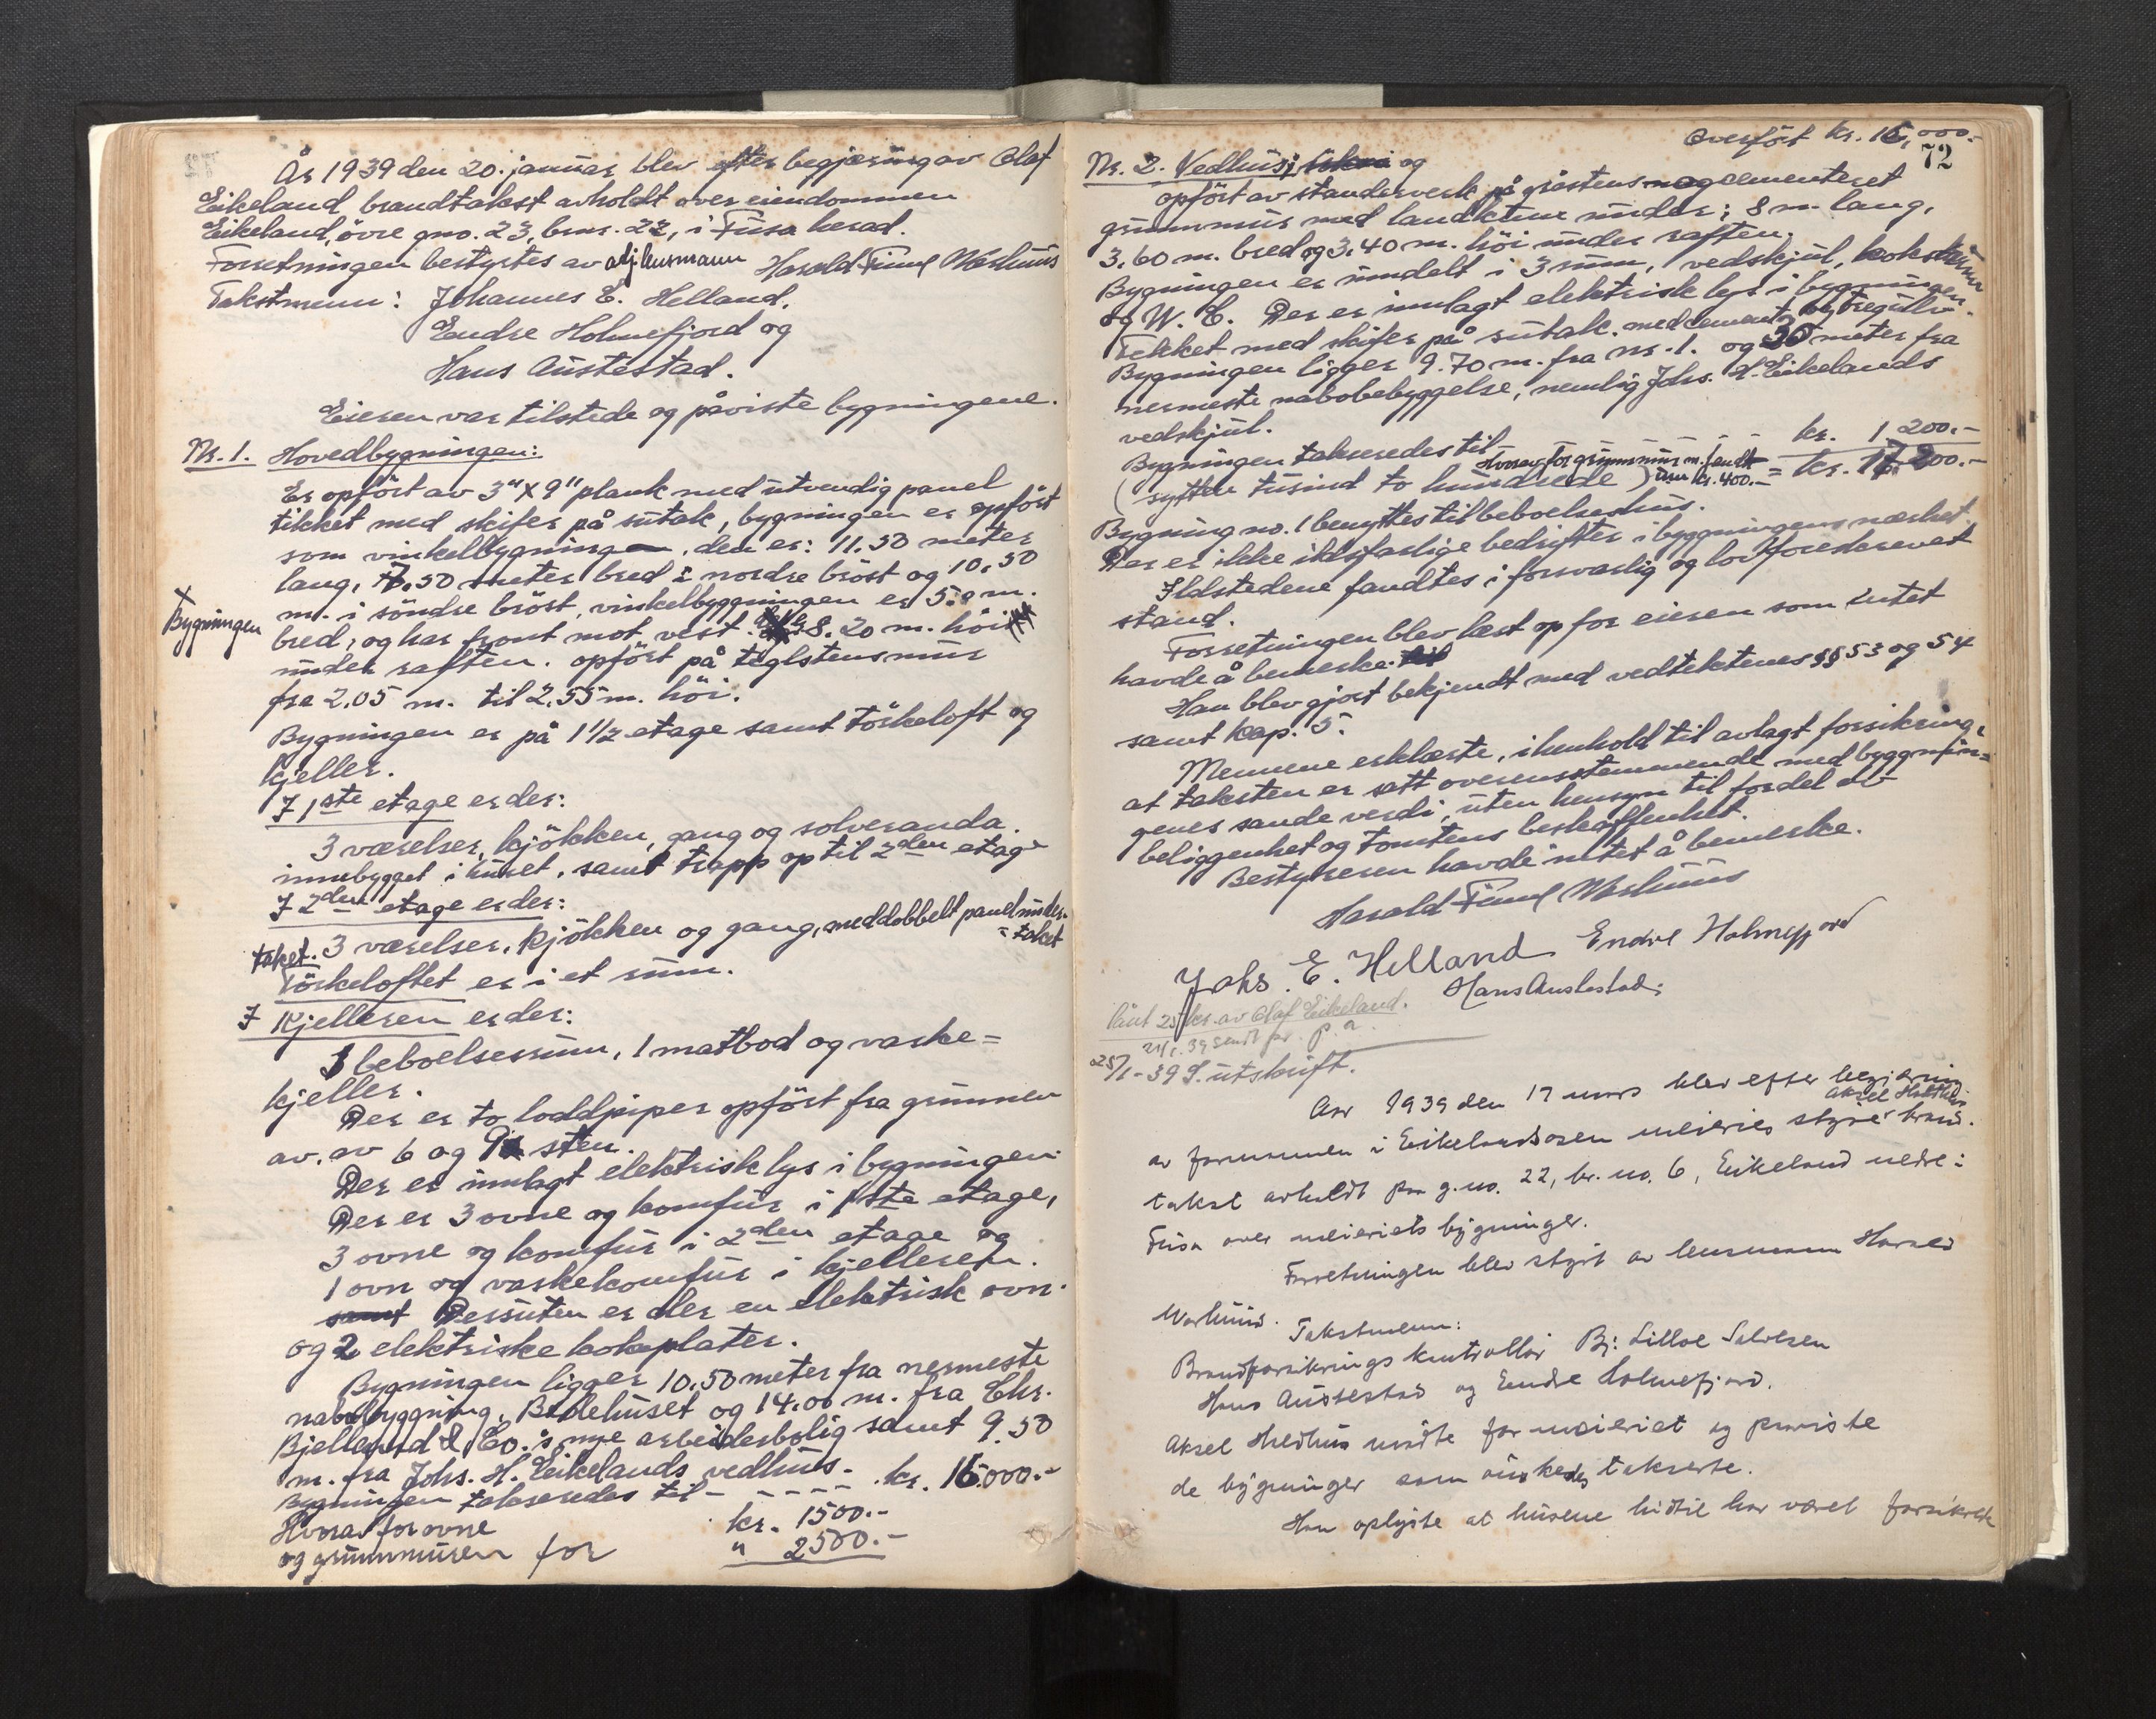 År 1939 den 20. januar blev efter begjæring av Olaf
Eikeland brandtakst avholdt over eiendommen
Eikeland, övre gno. 23, brnr. 22, i Fusa herad.
Forretningen bestyrtes av adj lensmann Harald Finne Warhuus
Takstmenn: Johannes E. Helland,
Endre Holmefjord og
Hans Austestad.
Eieren var tilstede og påviste bygningene.
Nr. 1. Hovedbygningen:
Er opfört av 3" X 9" plank med utvendig panel
tikket med skifer på sutak, bygningen er opfört
som vinkelbygning, den er: 11.50 meter
lang, 7.50 meter bred i nordre bröst og 10.50
m. i söndre bröst, vinkelbyggningen er 5.0 m.
Bygningen bred, og har front mot vest. 8.20 m. höi
under raften. opfört på teglstensmur
fra 2.05 m. til 2.55 m. höi.
Bygningen er på 1 1/2 etage samt törkeloft og
kjeller.
I 1ste etage er der:
3 værelser, kjökken, gang og solveranda.
innebygget i huset, samt trapp op til 2den etage
I 2den etage er der:
3 værelser, kjökken og gang, med dobbelt panel under
taket. = taket
Törkeloftet er i et rum.
I kjelleren er der:
1 beboelsesrum, 1 matbod og vaske=
kjeller.
Der er to loddpiper opfört fra grunnen
av, av 6 og 9 sten.
Der er innlagt elektrisk lys i bygningen.
Der er 3 ovne og komfur i 1ste etage,
3 ovne og komfur i 2den etage og
1 ovn og vaskekomfur i kjelleren.
samt Dessuten er der en elektrisk ovn
og 2 elektriske kokeplater.
Bygningen ligger 10.50 meter fra nermeste
nabobyggning, Bedehuset og 14.00 m. fra Chr.
Bjelland & Co.'s nye arbeiderbolig samt 9.50
m. fra Johs. H. Eikelands vedhus.
Bygningen takseredes til - - - - - kr. 16.000.-
Hvorav for ovne kr. 1500.-
og grunnmuren for " 2500.-
Overfört kr. 16,000.-
72
Nr. 2. Vedhus og
opfört av standerverk på gråstens cementeret
grunnmur med landktum under; 8 m. lang,
3.60 m. bred og 3.40 m. höi under raften.
Bygningen er inndelt i 3 rum, vedskjul,
og W. C. Der er innlagt elektrisk lys i bygningen.
Tekket med skifer på sutak. med cement og tregulv.
Bygningen ligger 9.70 m. fra nr. 1. og 30 meter fra
nermeste nabobebyggelse, nemlig Johs. H. Eikelands
vedskjul.
Bygningen takseredes til - - - - kr. 1 200.-
Hvorav for grunnmur m. landk
(sytten tusind to hundrede) tum kr. 400.- = kr. 17 200.-
Bygning no. 1 benyttes til beboelseshus.
Der er ikke ildsfarlige bedrifter i byggningens nærhet.
Ildstedene fandtes i forsvarlig og lovforeskrevet
stand.
Forretningen blev læst op for eieren som intet
havde å bemerke.
Han blev gjort bekjendt med vedtektenes §§ 53 og 54
samt kap. 5.
Mennene erklærte, i henhold til avlagt forsikring,
at taksten er satt overensstemmende med byggnin=
genes sande verdi, uten hensyn til fordel av
beliggenhet og tomtens beskaffenhet.
Bestyreren havde intet å bemerke.
Harald Finne Warhuus
Johs. E. Helland Endre Holmefjord
Hans Austestad.
lånt 25 kr. av Olaf Eikeland.
24/1. 39 sendt
25/1-39 S. utskrift.
Aar 1939 den 17 mars blev efter begjæring
av formannen i Eikelandsosen meieries styre Aksel Heldhus brand.
takst avholdt paa g. no. 22, br. no. 6, Eikeland nedre i
Fusa over meieriets bygninger.
Forretningen blev styrt av lensmann Harald
Warhuus.
Takstmenn:
Brandforsikrings kontrollør Bj: Lilloe Salvesen
Hans Austestad og Endre Holmefjord.
Aksel Heldhus mødte for meieriet og paaviste
de bygninger som ønskedes takserte.
Han oplyste at husene hidtil har været forsikrede